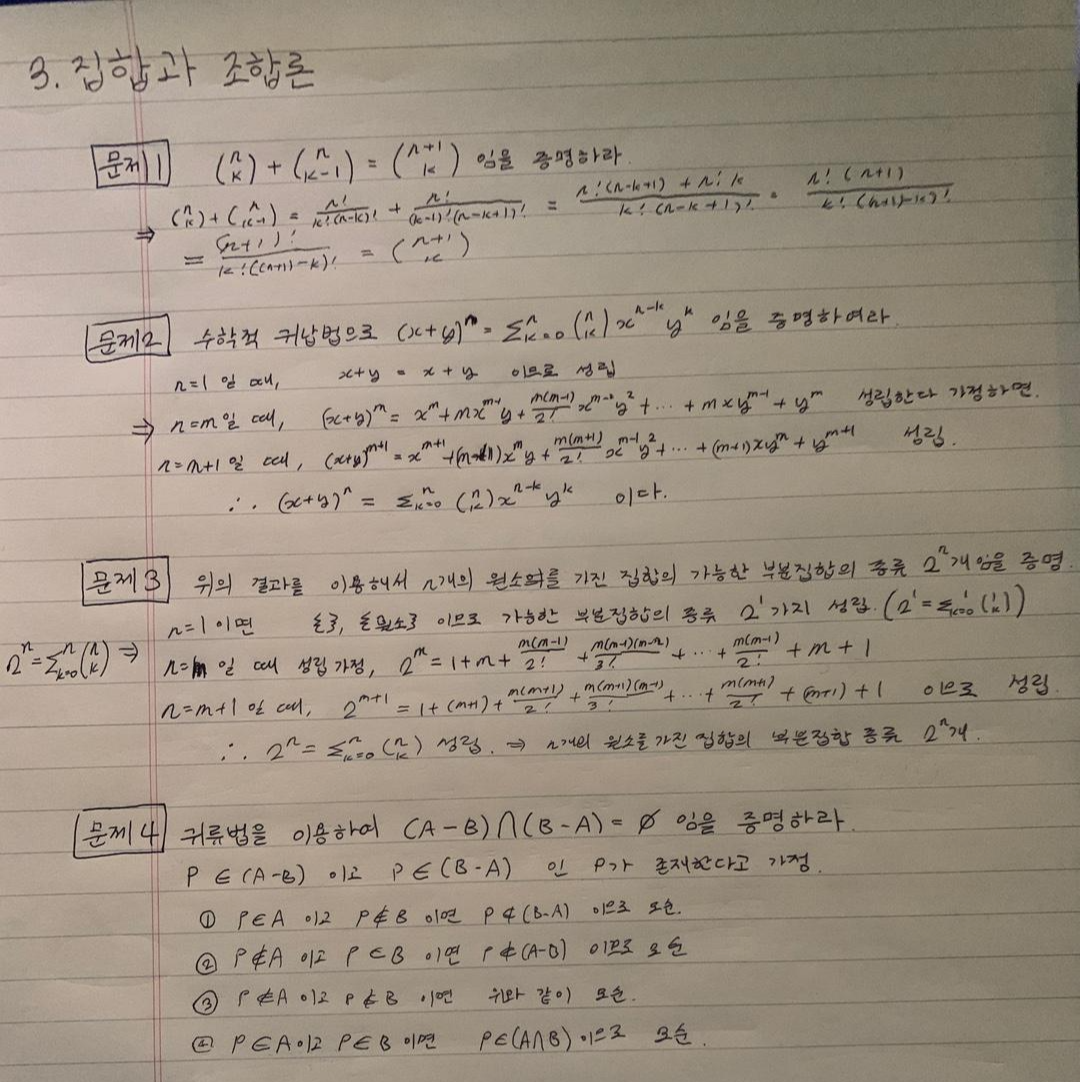 3. 집합과 조합론
문제1 (n k) + (n k-1) = (n+1 k) 임을 증명하라.
⇒ (n k) + (n k-1) = n!/k!(n-k)! + n!/(k-1)!(n-k+1)! = n!(n-k+1) + n!k / k!(n-k+1)! = n!(n+1)/k!((n+1)-k)!
= (n+1)!/k!((n+1)-k)! = (n+1 k)
문제2 수학적 귀납법으로 (x+y)^n = Σ_{k=0}^n (n k) x^{n-k} y^k 임을 증명하여라.
n=1 일 때, x+y = x+y 이므로 성립
⇒ n=m 일 때, (x+y)^m = x^m + mx^{m-1}y + m(m-1)/2! x^{m-2}y^2 + ... + mxy^{m-1} + y^m 성립한다 가정하면.
n=n+1 일 때, (x+y)^{m+1} = x^{m+1} + (m+1)x^m y + m(m+1)/2! x^{m-1}y^2 + ... + (m+1)xy^m + y^{m+1} 성립.
∴ (x+y)^n = Σ_{k=0}^n (n k) x^{n-k} y^k 이다.
문제3 위의 결과를 이용해서 n개의 원소를 가진 집합의 가능한 부분집합의 종류 2^n개 임을 증명.
n=1 이면 이므로 가능한 부분집합의 종류 2^1 가지 성립. (2^1 = Σ_{k=0}^1 (1 k))
2^n = Σ_{k=0}^n (n k) ⇒ n=m 일 때 성립 가정, 2^m = 1+m+ m(m-1)/2! + m(m-1)(m-2)/3! + ... + m(m-1)/2! + m + 1
n=m+1 일 때, 2^{m+1} = 1+(m+1)+ m(m+1)/2! + m(m+1)(m-1)/3! + ... + m(m+1)/2! + (m+1) + 1 이므로 성립.
∴ 2^n = Σ_{k=0}^n (n k) 성립. ⇒ n개의 원소를 가진 집합의 부분집합 종류 2^n개.
문제4 귀류법을 이용하여 (A-B)∩(B-A) = ∅ 임을 증명하라.
P∈(A-B) 이고 P∈(B-A) 인 P가 존재한다고 가정.
① P∈A 이고 P∉B 이면 P∉(B-A) 이므로 모순.
② P∉A 이고 P∈B 이면 P∉(A-B) 이므로 모순
③ P∉A 이고 P∉B 이면 위와 같이 모순.
④ P∈A 이고 P∈B 이면 P∈(A∩B) 이므로 모순.